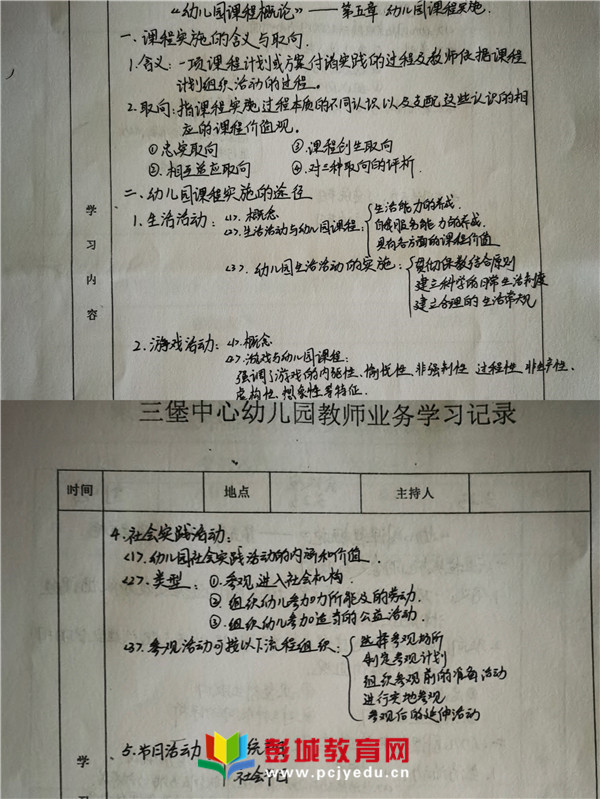 “幼儿园课程概论”——第五章 幼儿园课程实施.
一、课程实施的含义与取向.
1.含义:一项课程计划或方案付诸实践的过程及教师依据课程
计划组织活动的过程。
2.取向:指课程实施过程本质的不同认识以及支配这些认识的相
应的课程价值观。
①忠实取向 ③.课程创生取向
②.相互适应取向 ④.对三种取向的评析.
二、幼儿园课程实施的途径
1.生活活动: <1>.概念
<2>.生活活动与幼儿园课程:
生活能力的养成.
自我服务能力的养成.
具有各方面的课程价值
<3>.幼儿园生活活动的实施:
贯彻保教结合原则
建立科学的日常生活制度
建立合理的生活常规
2.游戏活动: <1>.概念
<2>.游戏与幼儿园课程:
强调了游戏的内驱性、愉悦性、非强制性 过程性 非生产性、
虚构性、想象性等特征.
学
习
内
容
三堡中心幼儿园教师业务学习记录
时间 地点 主持人
4.社会实践活动:
<1>.幼儿园社会实践活动的内涵和价值.
<2>.类型: ①.参观进入社会机构.
②.组织幼儿参加力所能及的劳动.
③.组织幼儿参加适当的公益活动.
<3>.参观活动可按以下流程组织:
选择参观场所
制定参观计划
组织参观前的准备活动
进行实地参观
参观后的延伸活动
5.节日活动
社会节日
学
彭城教育网
www.pcjyedu.cn